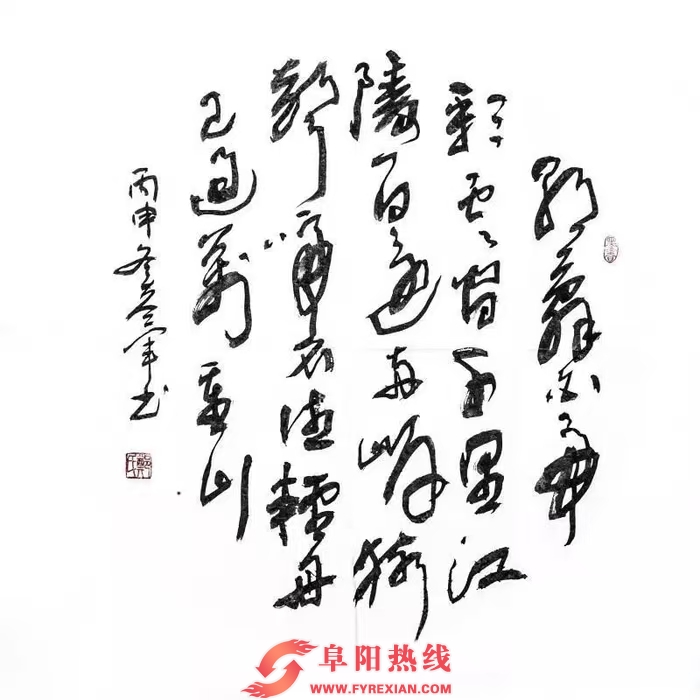 朝辞白帝
彩云间千里江
陵一日还两岸猿
声啼不住轻舟
已过万重山
丙申冬军书
阜阳热线
WWW.FYREXIAN.COM